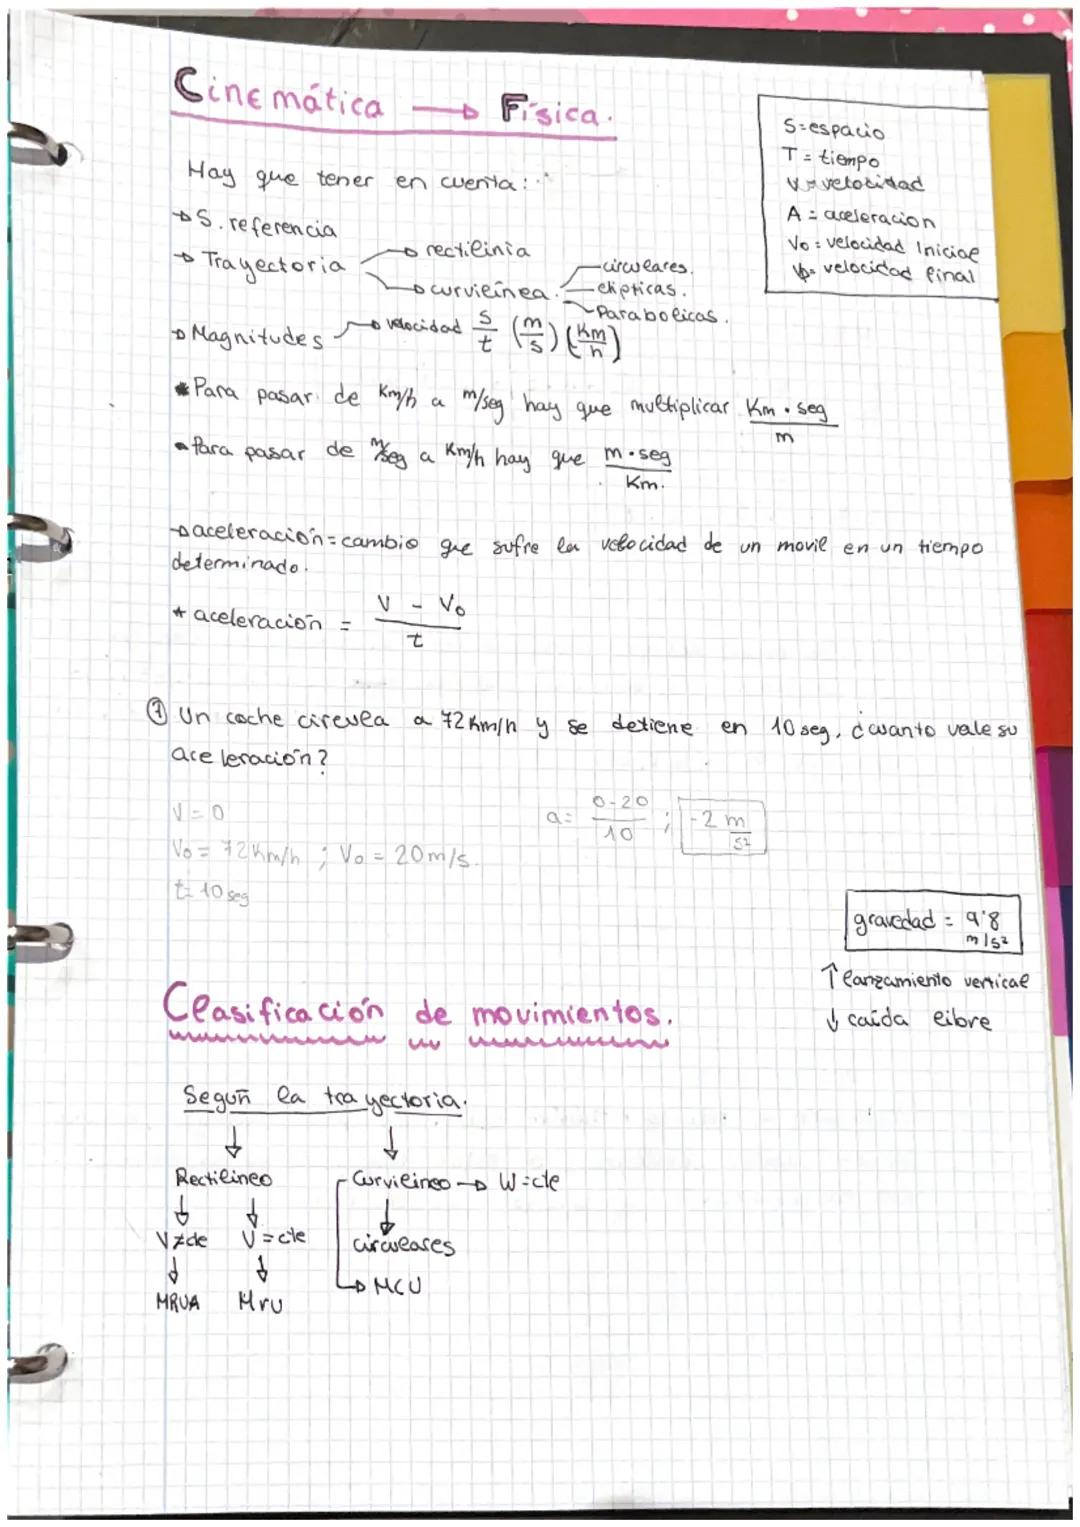 Cinemática → Física.
S=espacio
T = tiempo
V = velocidad
A = aceleracion
Vo = velocidad Inicial
= velocidad final
Hay que tener en cuenta:
→ S. referencia
→ Trayectoria → rectilinia
→ curvilínea.
- circulares.
- elipticas.
- Parabolicas.
→ Magnitudes → velocidad s/t (m/s) (Km/h)
* Para pasar de Km/h a m/seg hay que multiplicar Km · seg / m
• Para pasar de m/seg a Km/h hay que m · seg / Km.
→ aceleración = cambio que sufre la velocidad de un movil en un tiempo
determinado.
* aceleración = V - Vo / t
① Un coche circula a 72 Km/h y se detiene en 10 seg. ¿cuanto vale su
aceleración?
V = 0
Vo = 72 Km/h ; Vo = 20 m/s.
t = 10 seg
a = 0-20 / 10 ; -2 m/s²
gravedad = 9'8
m/s²
↑ lanzamiento vertical
↓ caída libre
Clasificación de movimientos.
Según la trayectoria.
↓ ↓
Rectilineo Curvilineo → W=cte
↓ ↓ ↓
V≠cte V=cte circulares
↓ ↓ → MCU
MRUA Mru